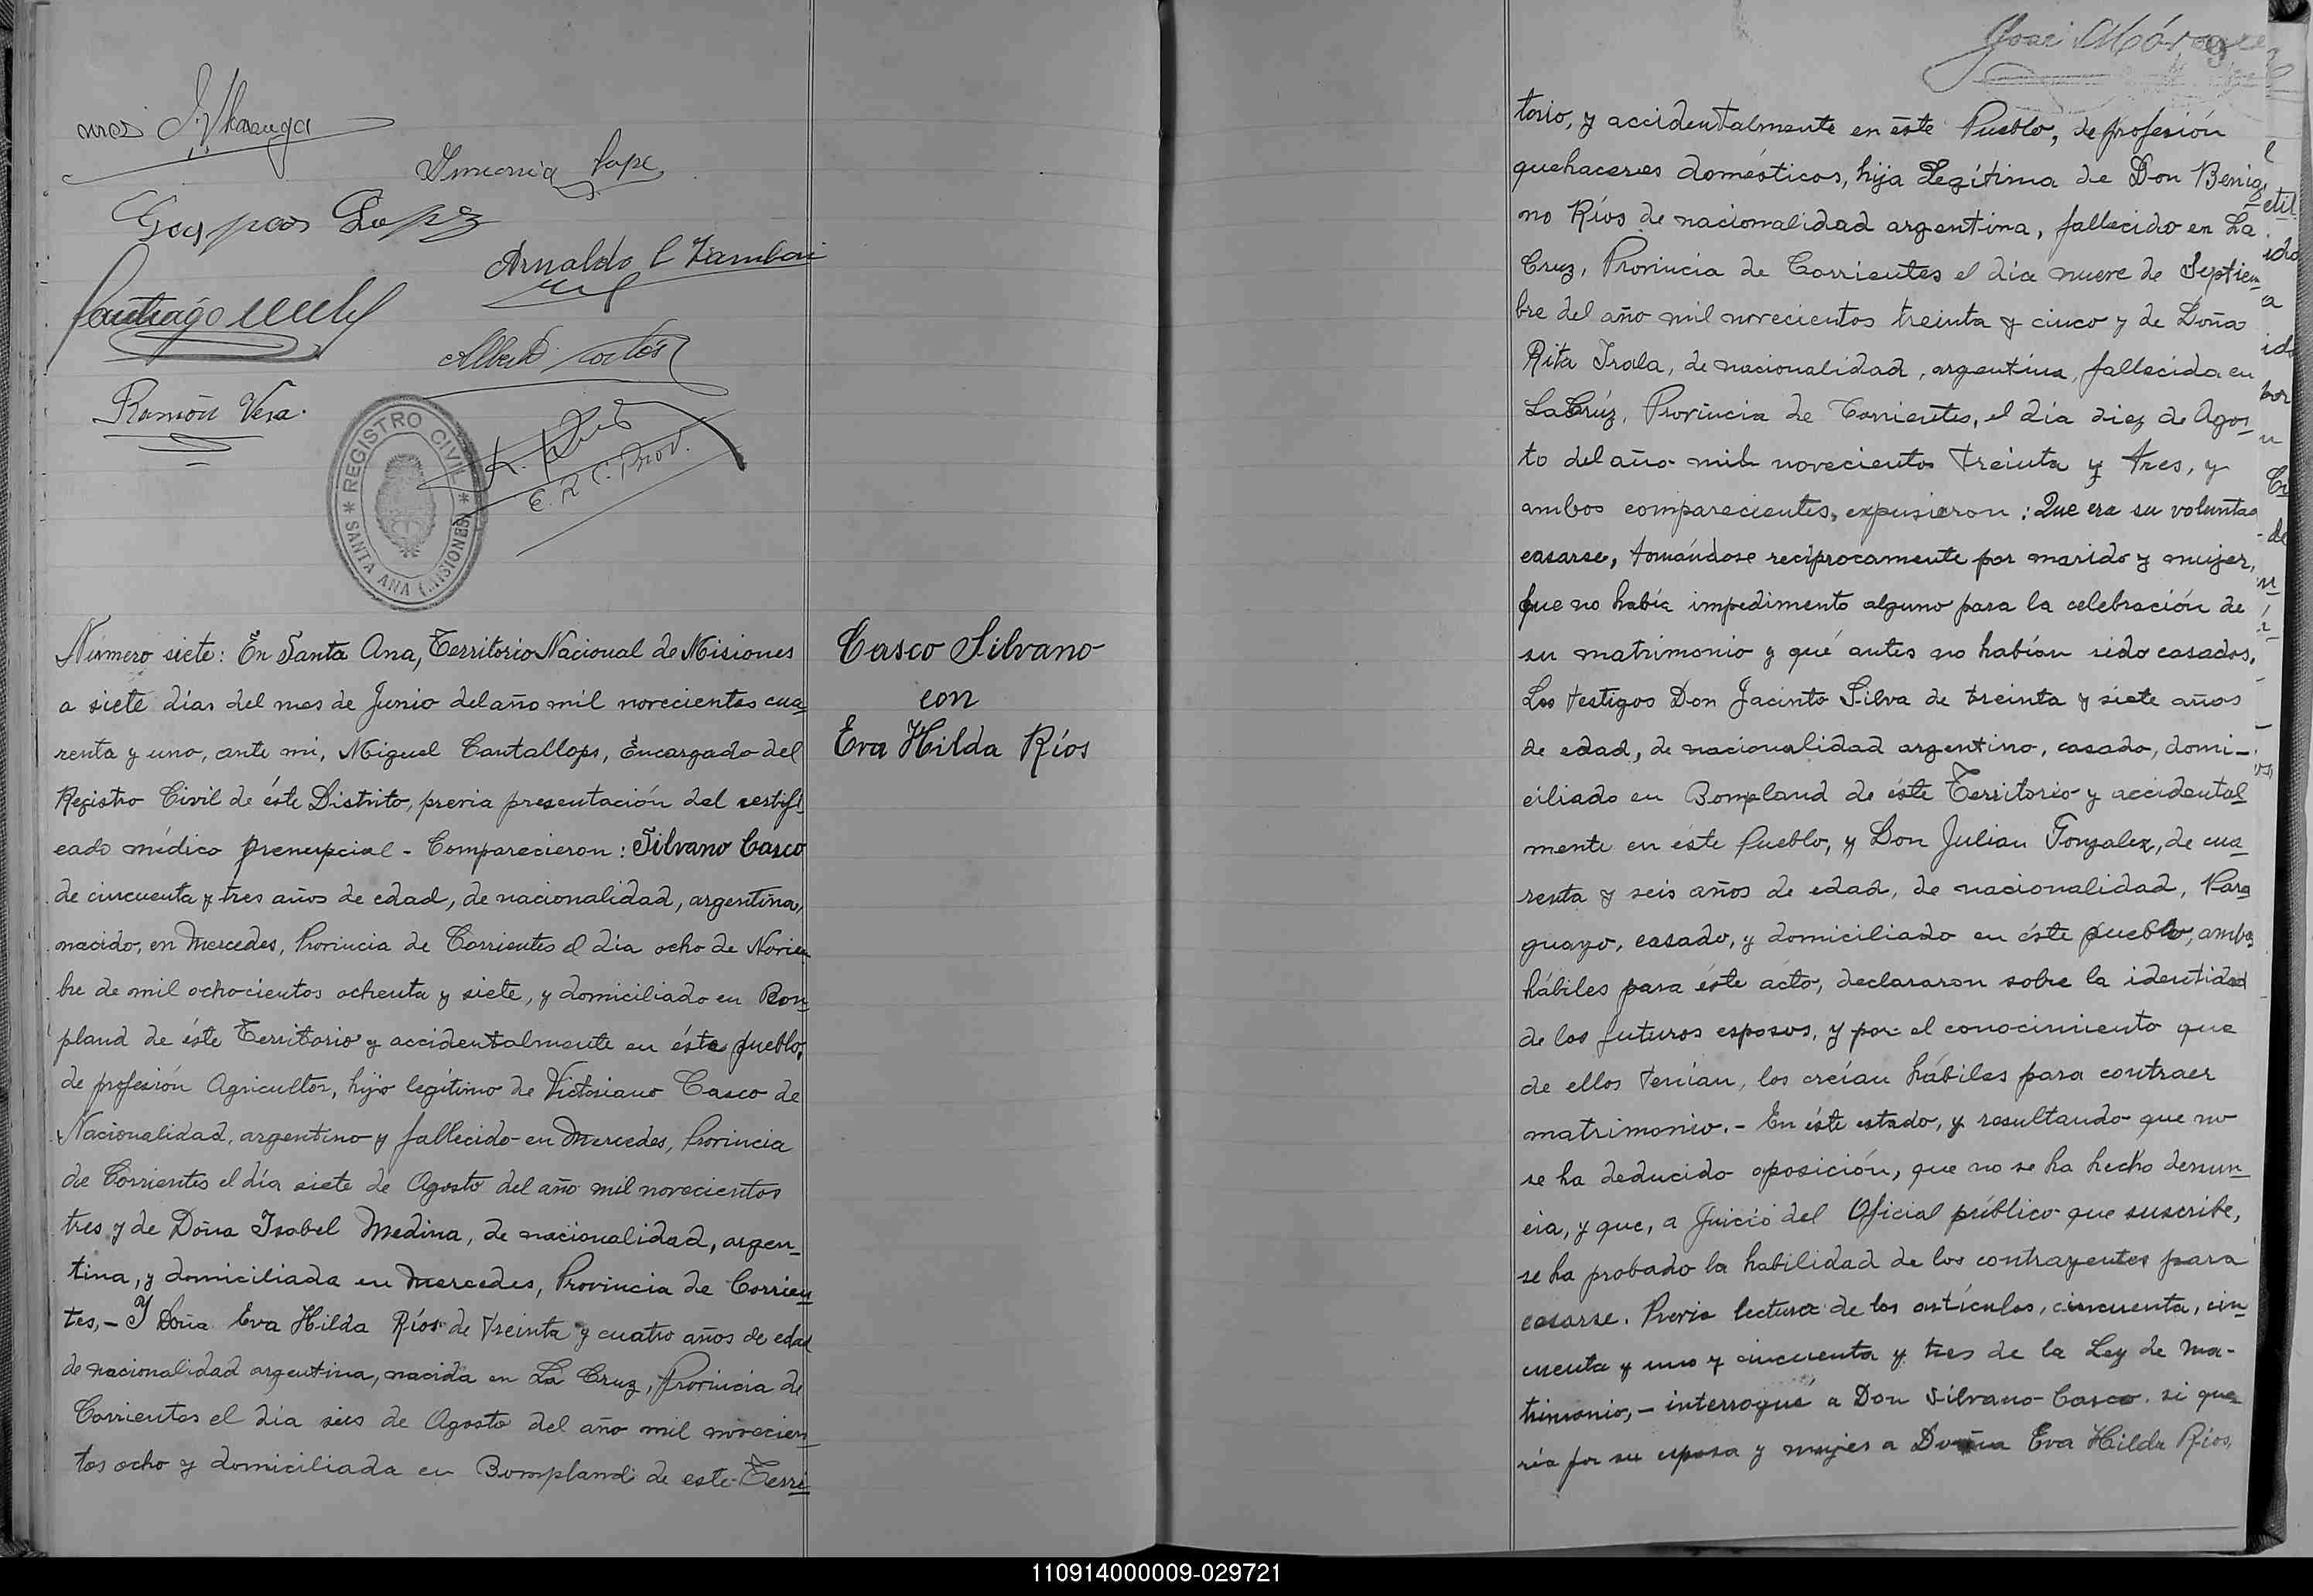 Gaspar Lopez
Arnaldo C Zamboni
Santiago
Alberto Cortés
Ramón Vera.
REGISTRO CIVIL
SANTA ANA (MISIONES)
E. R. C. Prov.
Número siete: En Santa Ana, Territorio Nacional de Misiones
a siete días del mes de Junio del año mil novecientos cua
renta y uno, ante mi, Miguel Cantallops, Encargado del
Registro Civil de éste Distrito, previa presentación del certifi
cado médico prenupcial - Comparecieron: Silvano Casco
de cincuenta y tres años de edad, de nacionalidad, argentina,
nacido, en Mercedes, Provincia de Corrientes el día ocho de Noviem
bre de mil ochocientos ochenta y siete, y domiciliado en Bon
pland de éste Territorio y accidentalmente en éste pueblo,
de profesión Agricultor, hijo legítimo de Victoriano Casco de
Nacionalidad, argentino y fallecido en Mercedes, Provincia
de Corrientes el día siete de Agosto del año mil novecientos
tres y de Doña Isabel Medina, de nacionalidad, argen
tina, y domiciliada en Mercedes, Provincia de Corrien
tes, - Y Doña Eva Hilda Ríos de treinta y cuatro años de edad
de nacionalidad argentina, nacida en La Cruz, Provincia de
Corrientes el día seis de Agosto del año mil novecien
tos ocho y domiciliada en Bompland de este Terri
Casco Silvano
con
Eva Hilda Ríos
torio, y accidentalmente en éste Pueblo, de profesión
quehaceres domésticos, hija Legítima de Don Benig
no Ríos de nacionalidad argentina, fallecido en La
Cruz, Provincia de Corrientes el día nueve de Septiem
bre del año mil novecientos treinta y cinco y de Doña
Rita Irala, de nacionalidad, argentina, fallecida en
La Crúz, Provincia de Corrientes, el día diez de Agos
to del año mil novecientos treinta y tres, y
ambos comparecientes, expusieron: Que era su voluntad
casarse, tomándose recíprocamente por marido y mujer,
que no había impedimento alguno para la celebración de
su matrimonio y qué antes no habían sido casados.
Los testigos Don Jacinto Silva de treinta y siete años
de edad, de nacionalidad argentino, casado, domi-
ciliado en Bompland de éste Territorio y accidental
mente en éste Pueblo, y Don Julian Gonzalez, de cua
renta y seis años de edad, de nacionalidad, Para
guayo, casado, y domiciliado en éste pueblo, ambos
hábiles para éste acto, declararon sobre la identidad
de los futuros esposos, y por el conocimiento que
de ellos tenían, los creían hábiles para contraer
matrimonio. - En éste estado, y resultando que no
se ha deducido oposición, que no se ha hecho denun
cia, y que, a Juicio del Oficial público que suscribe,
se ha probado la habilidad de los contrayentes para
casarse. Previa lectura de los artículos, cincuenta, cin
cuenta y uno y cincuenta y tres de la Ley de Ma-
trimonio, - interrogué a Don Silvano Casco. si que
ría por su esposa y mujer a Doña Eva Hilda Ríos,
110914000009-029721